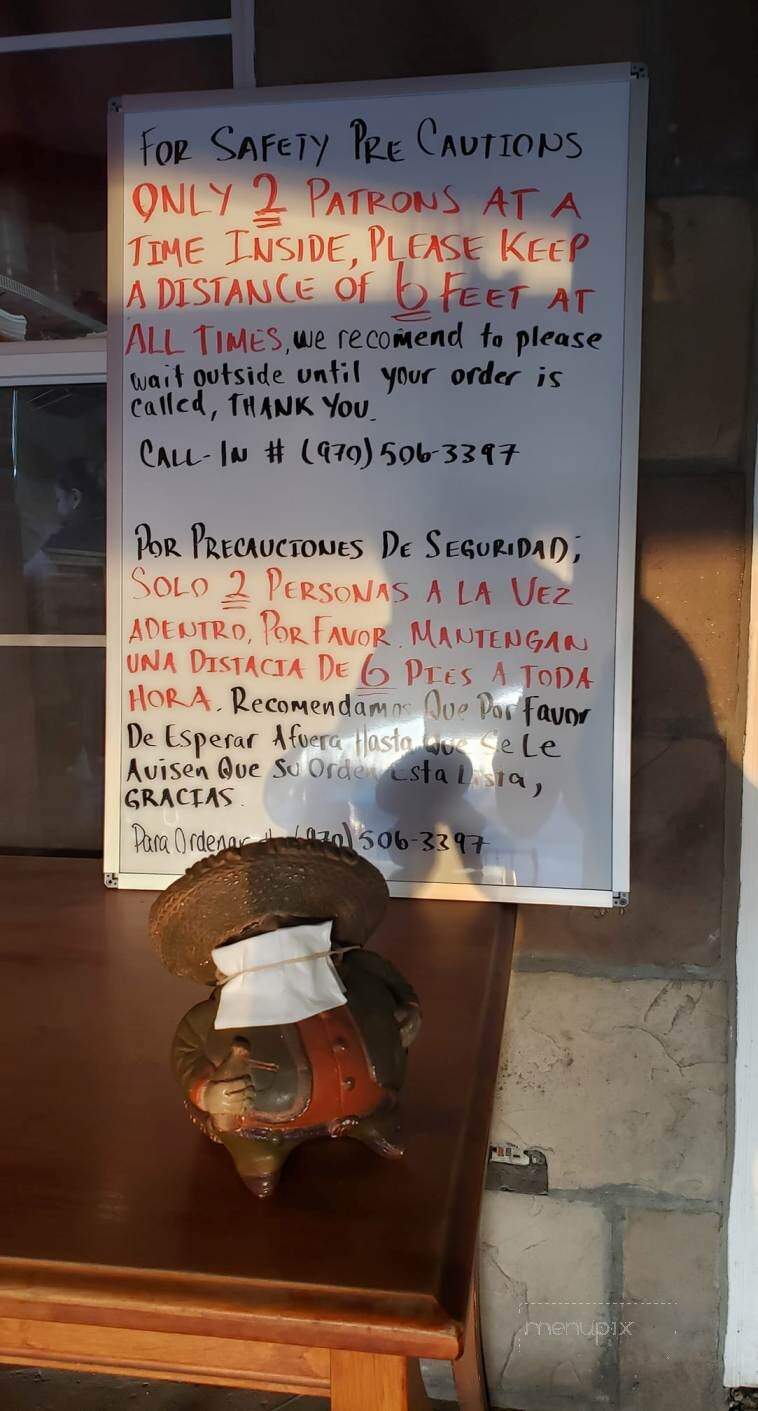 FOR SAFETY PRE CAUTIONS
ONLY 2 PATRONS AT A
TIME INSIDE, PLEASE KEEP
A DISTANCE OF 6 FEET AT
ALL TIMES, we recomend to please
wait outside until your order is
called, THANK YOU.
CALL-IN # (970) 506-3397
POR PRECAUCIONES DE SEGURIDAD;
SOLO 2 PERSONAS A LA VEZ
ADENTRO, POR FAVOR. MANTENGAN
UNA DISTACIA DE 6 PIES A TODA
HORA. Recomendamos Que Por Favor
De Esperar Afuera Hasta Que Se Le
Avisen Que Su Orden Esta Lista,
GRACIAS.
Para Ordenar # (970) 506-3397
menupix